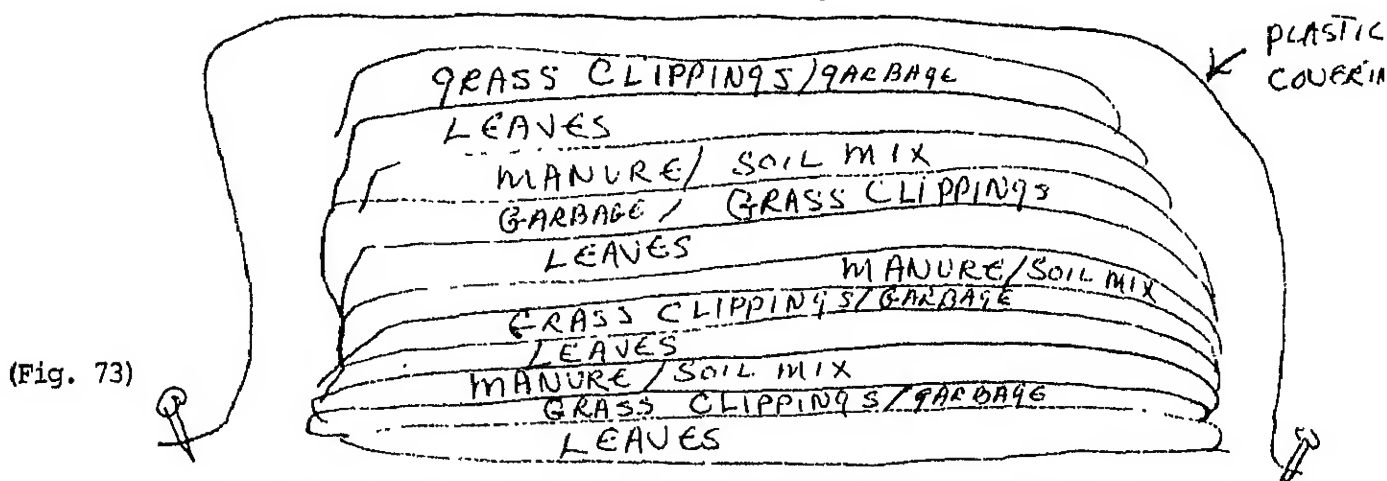 PLASTIC
COVERIN
GRASS CLIPPINGS/GARBAGE
LEAVES
MANURE/ SOIL MIX
GARBAGE / GRASS CLIPPINGS
LEAVES
MANURE/SOIL MIX
GRASS CLIPPINGS/GARBAGE
LEAVES
MANURE/SOIL MIX
GRASS CLIPPINGS/GARBAGE
LEAVES
(Fig. 73)